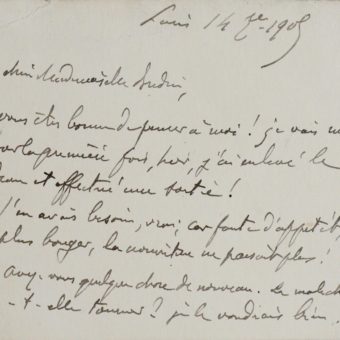 Paris 14 7e - 1905
chère Mademoiselle
vous êtes bonne de penser à moi ! je vais m
Pour la première fois, hier, j'ai enlevé le
et effectué une sortie !
J'en avais besoin, vrai, car faute d'appétit,
plus bouger, la nourriture ne passait plus !
avez-vous quelque chose de nouveau. Le
-t-elle tourner ? je le voudrais bien